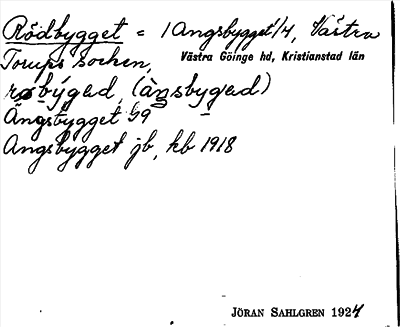 Rödbygget = 1 Angsbygget 1/4, Västra
Torups socken, Västra Göinge hd, Kristianstad län
røbýgad, (àŋsbygad)
Ängsbygget G9
Angsbygget jb, kb 1918
JÖRAN SAHLGREN 1924